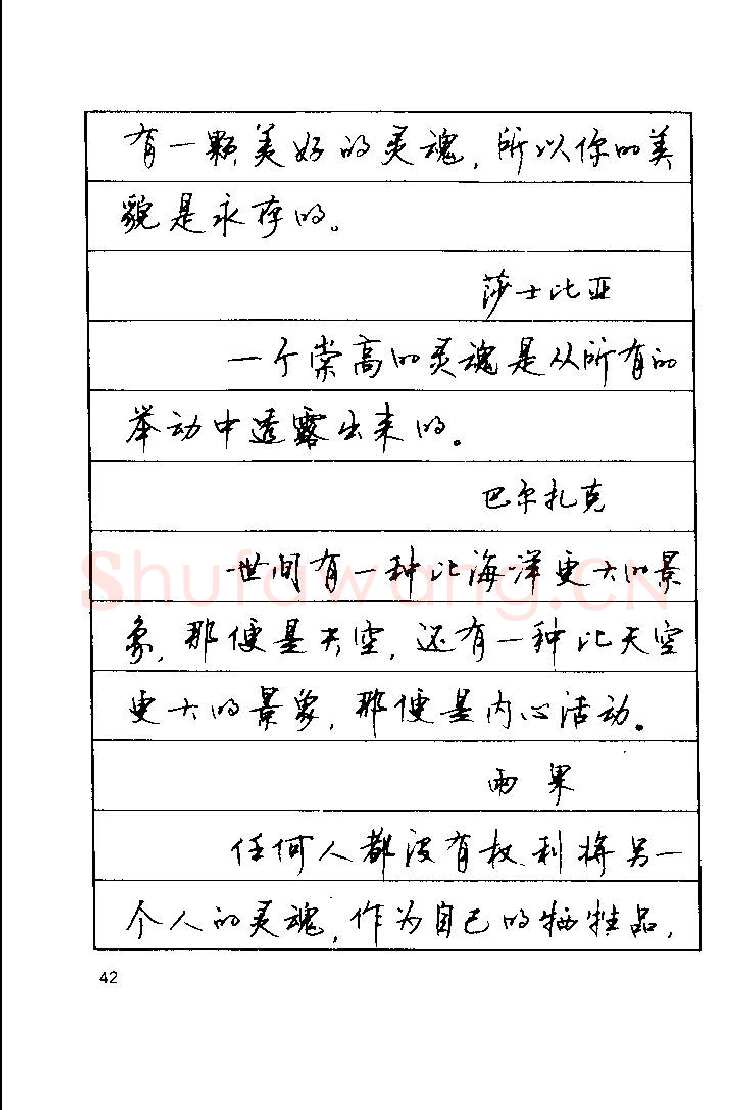 有一颗美好的灵魂，所以你的美
貌是永存的。
莎士比亚
一个崇高的灵魂是从所有的
举动中透露出来的。
巴尔扎克
世间有一种比海洋更大的景
象，那便是天空，还有一种比天空
更大的景象，那便是内心活动。
雨果
任何人都没有权利将另一
个人的灵魂，作为自己的牺牲品，
42
Shufawang.CN